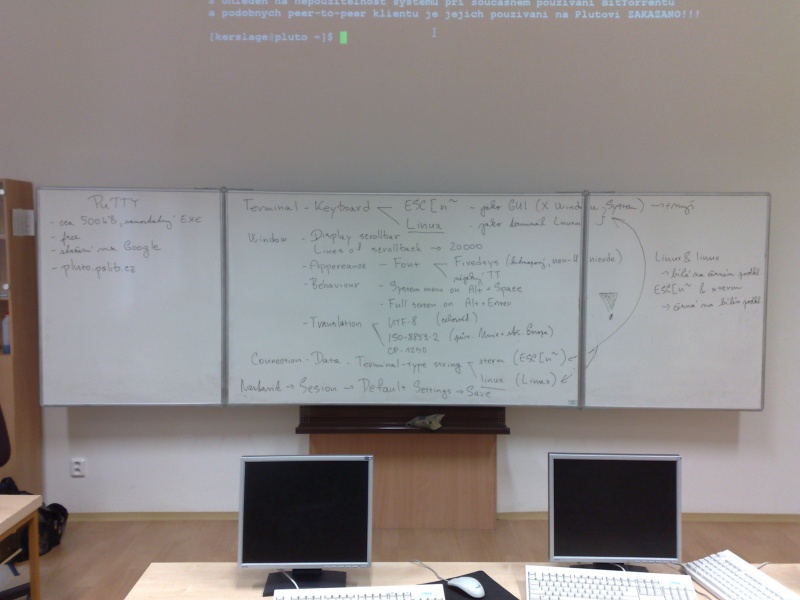 s ohledem na nepouzitelnost systemu pri soucasnem pouzivani BitTorrentu
a podobnych peer-to-peer klientu je jejich pouzivani na Plutovi ZAKAZANO!!!
[kerslage@pluto ~]$
PuTTY
- cca 500kB, samostatný EXE
- free
- stažení na Google
- pluto.pslib.cz
Terminal - Keyboard
ESC[n~ - jako GUI (X Window System)
Linux - jako terminál Linuxu
Window - Display scrollbar
Lines of scrollback → 20000
- Appereance - Font - Fixedsys
TT
- Behaviour - System menu on Alt+Space
- Full screen on Alt+Enter
- Translation
UTF-8
ISO-8859-2
CP-1250
Connection - Data - Terminal-type string
xterm (ESC[n~)
linux (Linux)
→ Sesion → Default Settings → Save
Linux & linux
→ bílá na černém
ESC[n~ & xterm
→ černá na bílém